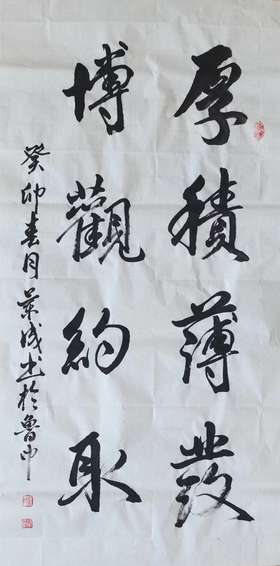 厚積薄發
博觀約取
癸卯春月景成書於魯中